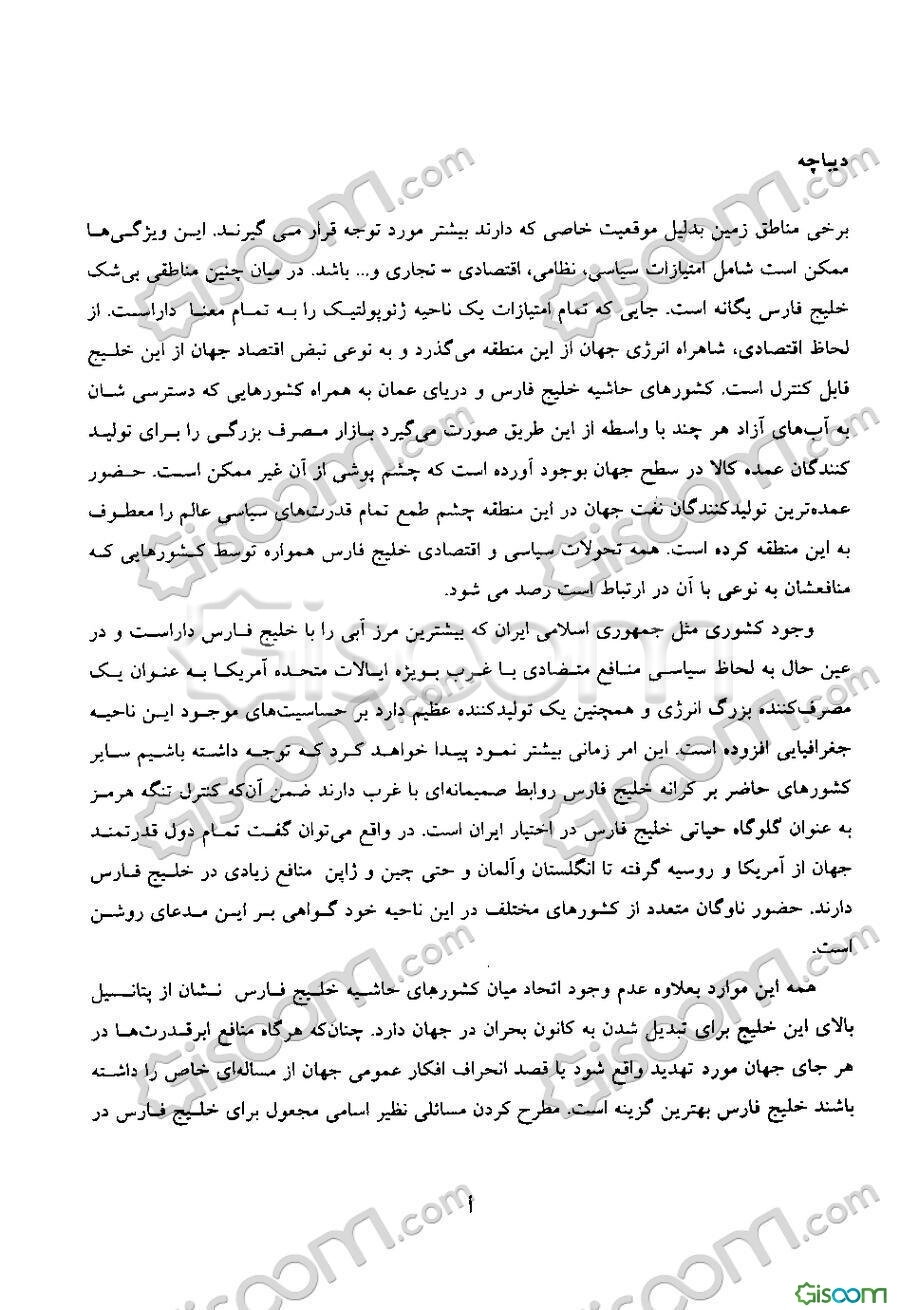 دیباچه
برخی مناطق زمین بدلیل موقعیت خاصی که دارند بیشتر مورد توجه قرار می گیرند. این ویژگی‌ها
ممکن است شامل امتیازات سیاسی، نظامی، اقتصادی - تجاری و... باشد. در میان چنین مناطقی بی‌شک
خلیج فارس یگانه است. جایی که تمام امتیازات یک ناحیه ژئوپولتیک را به تمام معنا داراست. از
لحاظ اقتصادی، شاهراه انرژی جهان از این منطقه می‌گذرد و به نوعی نبض اقتصاد جهان از این خلیج
قابل کنترل است. کشورهای حاشیه خلیج فارس و دریای عمان به همراه کشورهایی که دسترسی شان
به آب‌های آزاد هر چند با واسطه از این طریق صورت می‌گیرد بازار مصرف بزرگی را برای تولید
کنندگان عمده کالا در سطح جهان بوجود آورده است که چشم پوشی از آن غیر ممکن است. حضور
عمده‌ترین تولیدکنندگان نفت جهان در این منطقه چشم طمع تمام قدرت‌های سیاسی عالم را معطوف
به این منطقه کرده است. همه تحولات سیاسی و اقتصادی خلیج فارس همواره توسط کشورهایی که
منافعشان به نوعی با آن در ارتباط است رصد می شود.
وجود کشوری مثل جمهوری اسلامی ایران که بیشترین مرز آبی را با خلیج فارس داراست و در
عین حال به لحاظ سیاسی منافع متضادی با غرب بویژه ایالات متحده آمریکا به عنوان یک
مصرف‌کننده بزرگ انرژی و همچنین یک تولیدکننده عظیم دارد بر حساسیت‌های موجود این ناحیه
جغرافیایی افزوده است. این امر زمانی بیشتر نمود پیدا خواهد کرد که توجه داشته باشیم سایر
کشورهای حاضر بر کرانه خلیج فارس روابط صمیمانه‌ای با غرب دارند ضمن آن‌که کنترل تنگه هرمز
به عنوان گلوگاه حیاتی خلیج فارس در اختیار ایران است. در واقع می‌توان گفت تمام دول قدرتمند
جهان از آمریکا و روسیه گرفته تا انگلستان وآلمان و حتی چین و ژاپن منافع زیادی در خلیج فارس
دارند. حضور ناوگان متعدد از کشورهای مختلف در این ناحیه خود گواهی بر این مدعای روشن
است.
همه این موارد بعلاوه عدم وجود اتحاد میان کشورهای حاشیه خلیج فارس نشان از پتانسیل
بالای این خلیج برای تبدیل شدن به کانون بحران در جهان دارد. چنان‌که هرگاه منافع ابرقدرت‌ها در
هر جای جهان مورد تهدید واقع شود یا قصد انحراف افکار عمومی جهان از مساله‌ای خاص را داشته
باشند خلیج فارس بهترین گزینه است. مطرح کردن مسائلی نظیر اسامی مجعول برای خلیج فارس در
أ
Gisoom
Gisoom.com